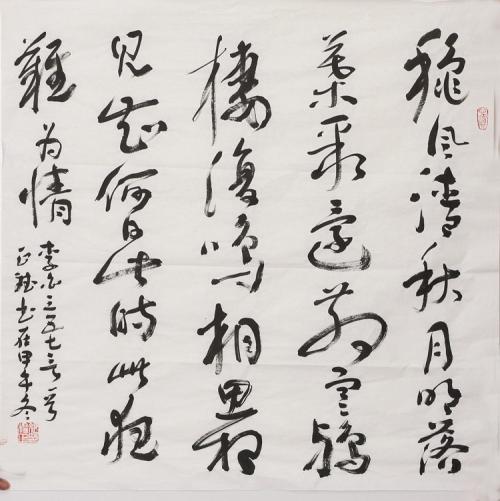 穐風清秋月明落
葉聚還散寒鴉
棲復鳴相思相
見知何日此時此夜
難為情
李白三五七言詩
书在甲午冬